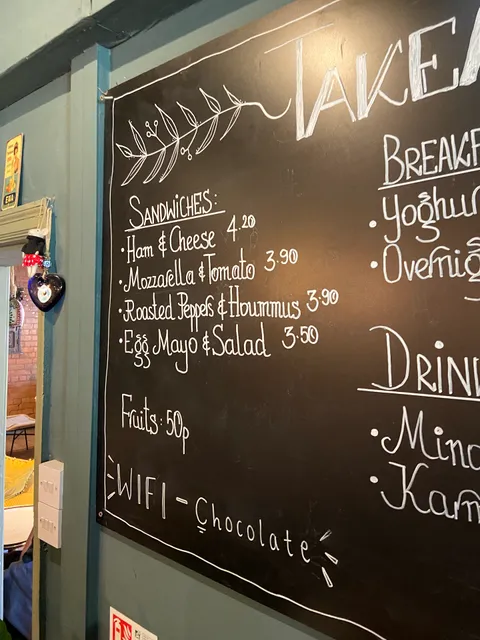 TAKEA
SANDWICHES:
• Ham & Cheese 4.20
• Mozzarella & Tomato 3.90
• Roasted Peppers & Hoummus 3.90
• Egg Mayo & Salad 3.50
Fruits: 50p
WIFI - Chocolate
BREAKF
• Yoghur
• Overnig
DRIN
• Mine
• Kam